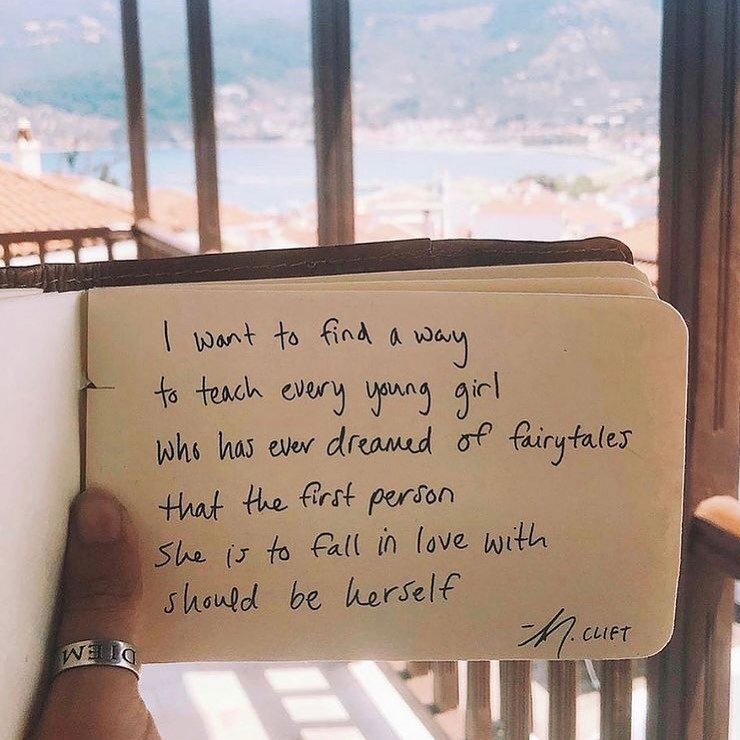 I want to find a way
to teach every young girl
who has ever dreamed of fairytales
that the first person
she is to fall in love with
should be herself
-M. CLIFT
DIEM